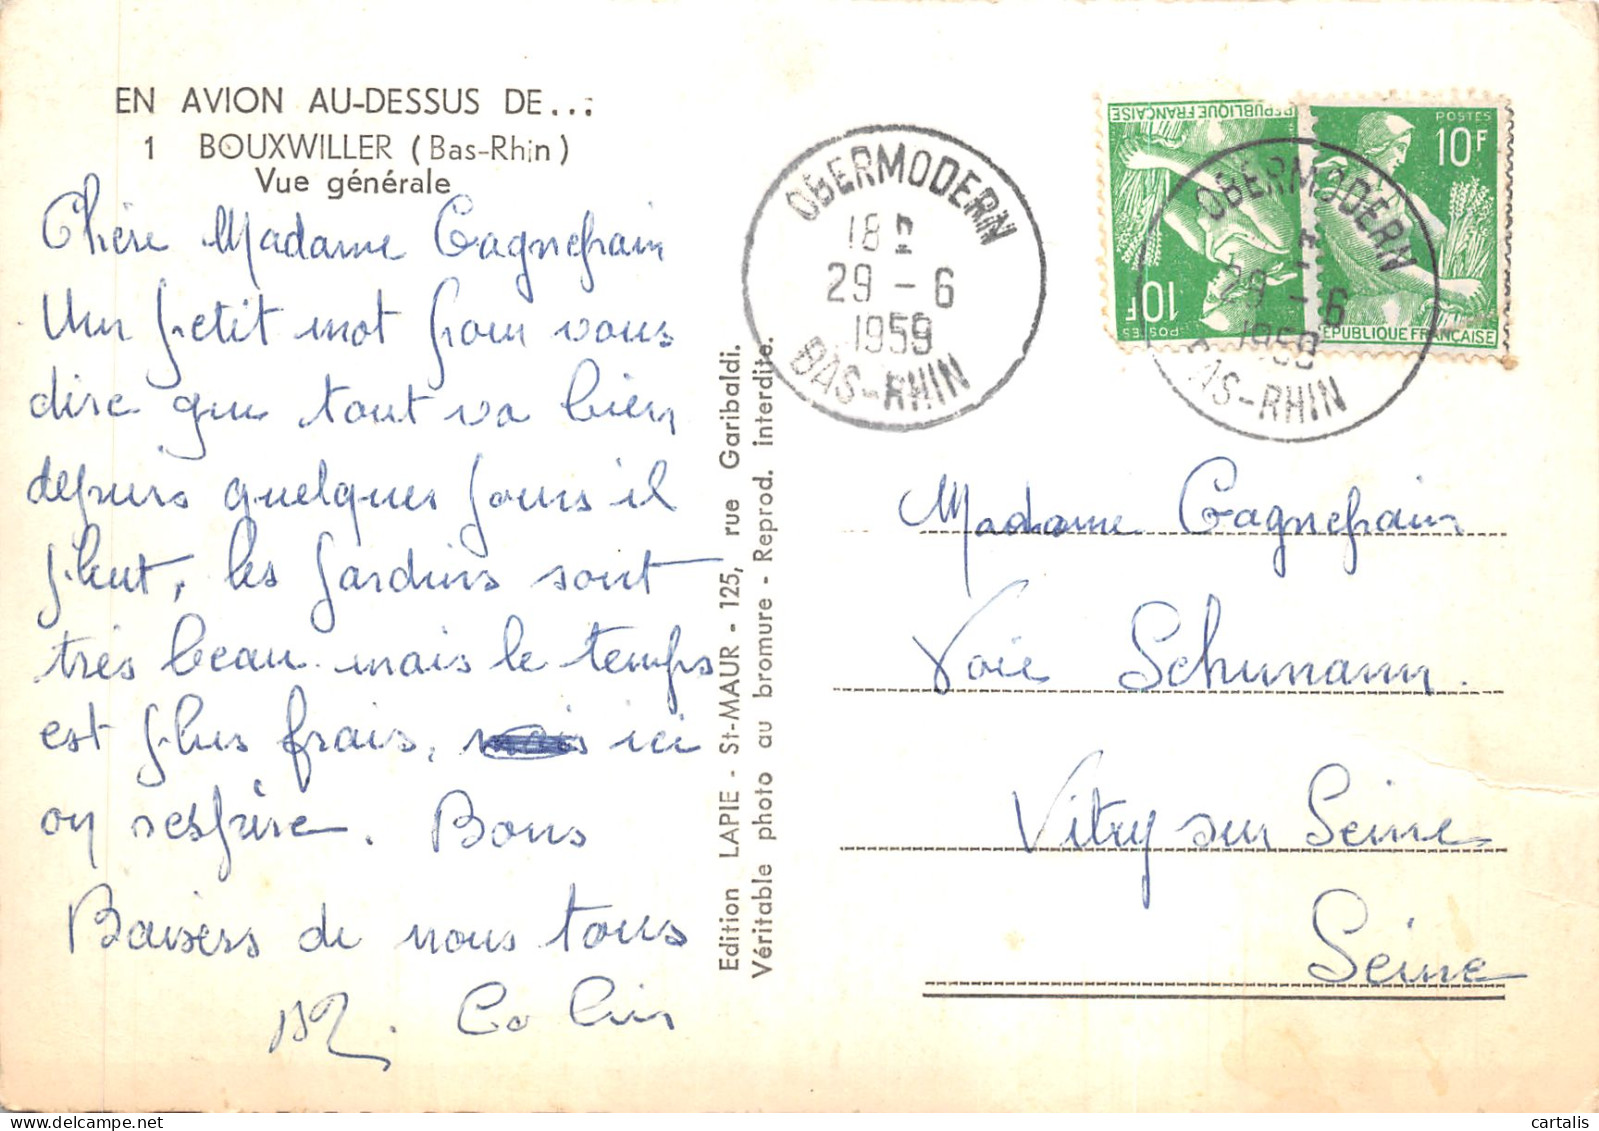 EN AVION AU-DESSUS DE...
1 BOUXWILLER (Bas-Rhin)
Vue générale
Chère Madame Gagnepain
Un petit mot pour vous
dire que tout va bien
depuis quelques jours il
pleut, les jardins sont
très beau mais le temps
est plus frais, mais ici
on respire. Bons
Baisers de nous tous
Colin
Edition LAPIE - St-MAUR - 125, rue Garibaldi.
Véritable photo au bromure - Reprod. interdite.
OBERMODERN
18 H
29 - 6
1959
BAS-RHIN
REPUBLIQUE FRANÇAISE
10F
POSTES
POSTES
10F
REPUBLIQUE FRANÇAISE
OBERMODERN
29 - 6
1959
BAS-RHIN
Madame Gagnepain
Voie Schumann.
Vitry sur Seine
Seine
cartalis